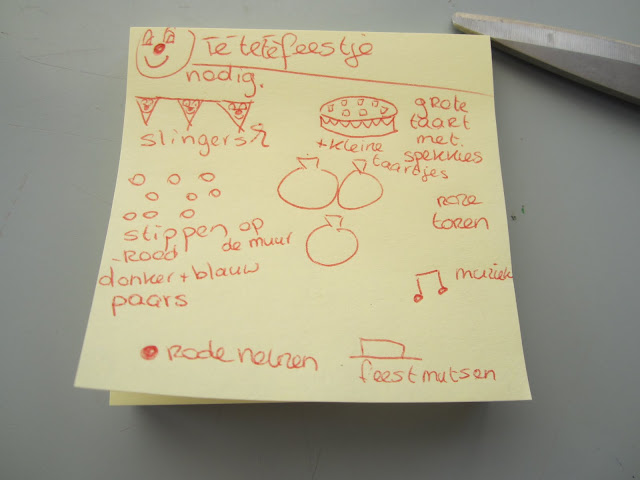 Té tetéfeestje
nodig.
slingers
grote
taart
met
spekkies
+kleine
taartjes
stippen op
de muur
-rood
donker+blauw
paars
roze
toren
muziek
rode neuzen
feestmutsen